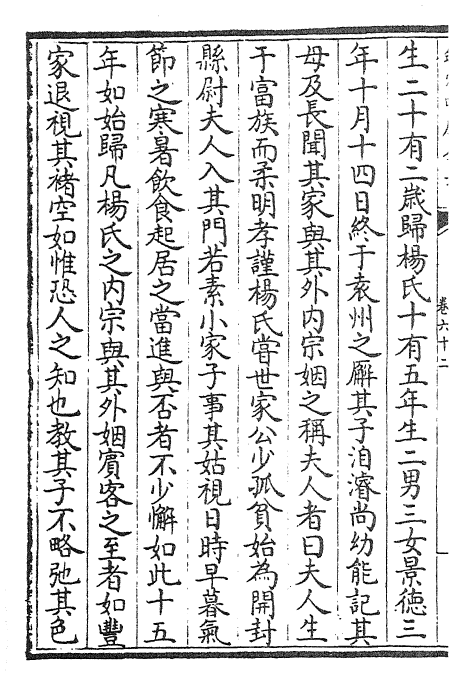 卷六十二
生二十有二歳歸楊氏十有五年生二男三女景徳三
年十月十四日終于袁州之廨其子洎濬尚幼能記其
母及長聞其家與其外内宗姻之稱夫人者曰夫人生
于富族而柔明孝謹楊氏嘗世家公少孤貧始為開封
縣尉夫人入其門若素小家子事其姑視日時早暮氣
節之寒暑飲食起居之當進與否者不少懈如此十五
年如始歸凡楊氏之内宗與其外姻賓客之至者如豐
家退視其褚空如惟恐人之知也教其子不略弛其色